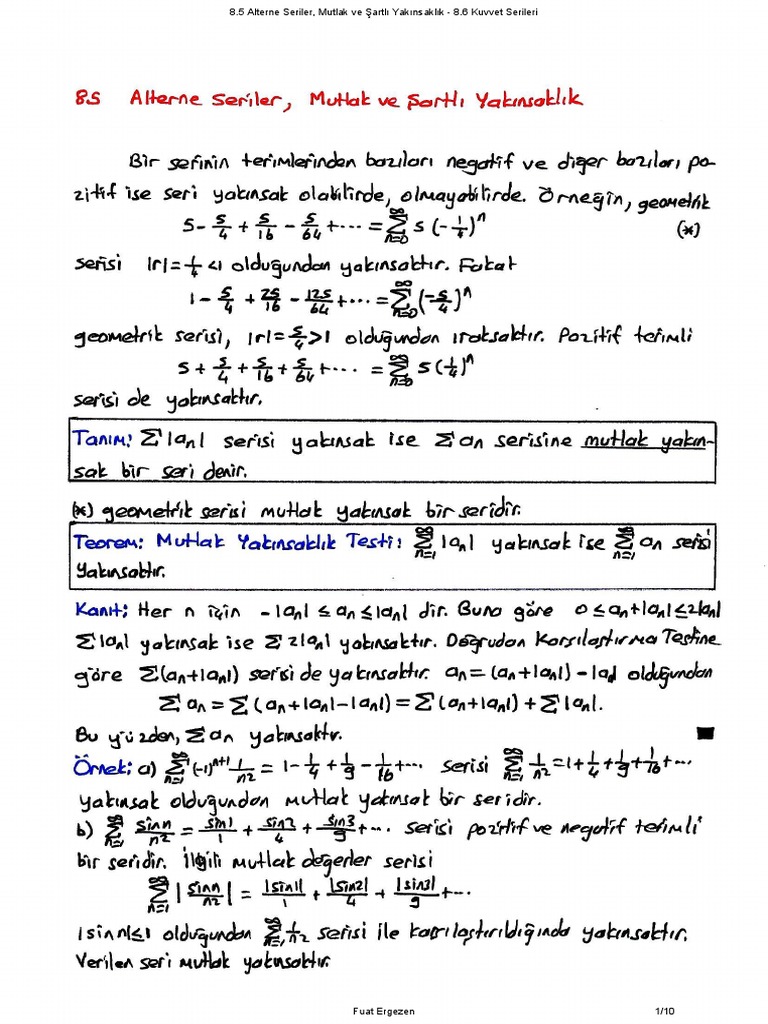 8.5 Alterne Seriler, Mutlak ve Şartlı Yakınsaklık - 8.6 Kuvvet Serileri
8.5 Alterne Seriler, Mutlak ve Şartlı Yakınsaklık
Bir serinin terimlerinden bazıları negatif ve diğer bazıları po-
zitif ise seri yakınsak olabilirde, olmayabilirde. Örneğin, geometrik
5 - 5/4 + 5/16 - 5/64 + ··· = ∑_{n=0}^{∞} 5 (-1/4)^n (*)
serisi |r| = 1/4 < 1 olduğundan yakınsaktır. Fakat
1 - 5/4 + 25/16 - 125/64 + ··· = ∑_{n=0}^{∞} (-5/4)^n
geometrik serisi, |r| = 5/4 > 1 olduğundan ıraksaktır. Pozitif terimli
5 + 5/4 + 5/16 + 5/64 + ··· = ∑_{n=0}^{∞} 5 (1/4)^n
serisi de yakınsaktır.
Tanım: ∑|aₙ| serisi yakınsak ise ∑aₙ serisine mutlak yakın-
sak bir seri denir.
(*) geometrik serisi mutlak yakınsak bir seridir.
Teorem: Mutlak Yakınsaklık Testi: ∑_{n=1}^{∞} |aₙ| yakınsak ise ∑_{n=1}^{∞} aₙ serisi
yakınsaktır.
Kanıt: Her n için -|aₙ| ≤ aₙ ≤ |aₙ| dir. Buna göre 0 ≤ aₙ + |aₙ| ≤ 2|aₙ|
∑|aₙ| yakınsak ise ∑2|aₙ| yakınsaktır. Doğrudan Karşılaştırma Testine
göre ∑(aₙ+|aₙ|) serisi de yakınsaktır. aₙ = (aₙ+|aₙ|) - |aₙ| olduğundan
∑aₙ = ∑(aₙ+|aₙ|-|aₙ|) = ∑(aₙ+|aₙ|) + ∑|aₙ|.
Bu yüzden, ∑aₙ yakınsaktır. ■
Örnek: a) ∑_{n=1}^{∞} (-1)^{n+1} 1/n² = 1 - 1/4 + 1/9 - 1/16 + ··· serisi ∑_{n=1}^{∞} 1/n² = 1 + 1/4 + 1/9 + 1/16 + ···
yakınsak olduğundan mutlak yakınsak bir seridir.
b) ∑_{n=1}^{∞} sinn/n² = sin1/1 + sin2/4 + sin3/9 + ··· serisi pozitif ve negatif terimli
bir seridir. İlgili mutlak değerler serisi
∑_{n=1}^{∞} |sinn/n²| = |sin1|/1 + |sin2|/4 + |sin3|/9 + ···
|sinn| ≤ 1 olduğundan ∑_{n=1}^{∞} 1/n² serisi ile karşılaştırıldığında yakınsaktır.
Verilen seri mutlak yakınsaktır.
Fuat Ergezen 1/10